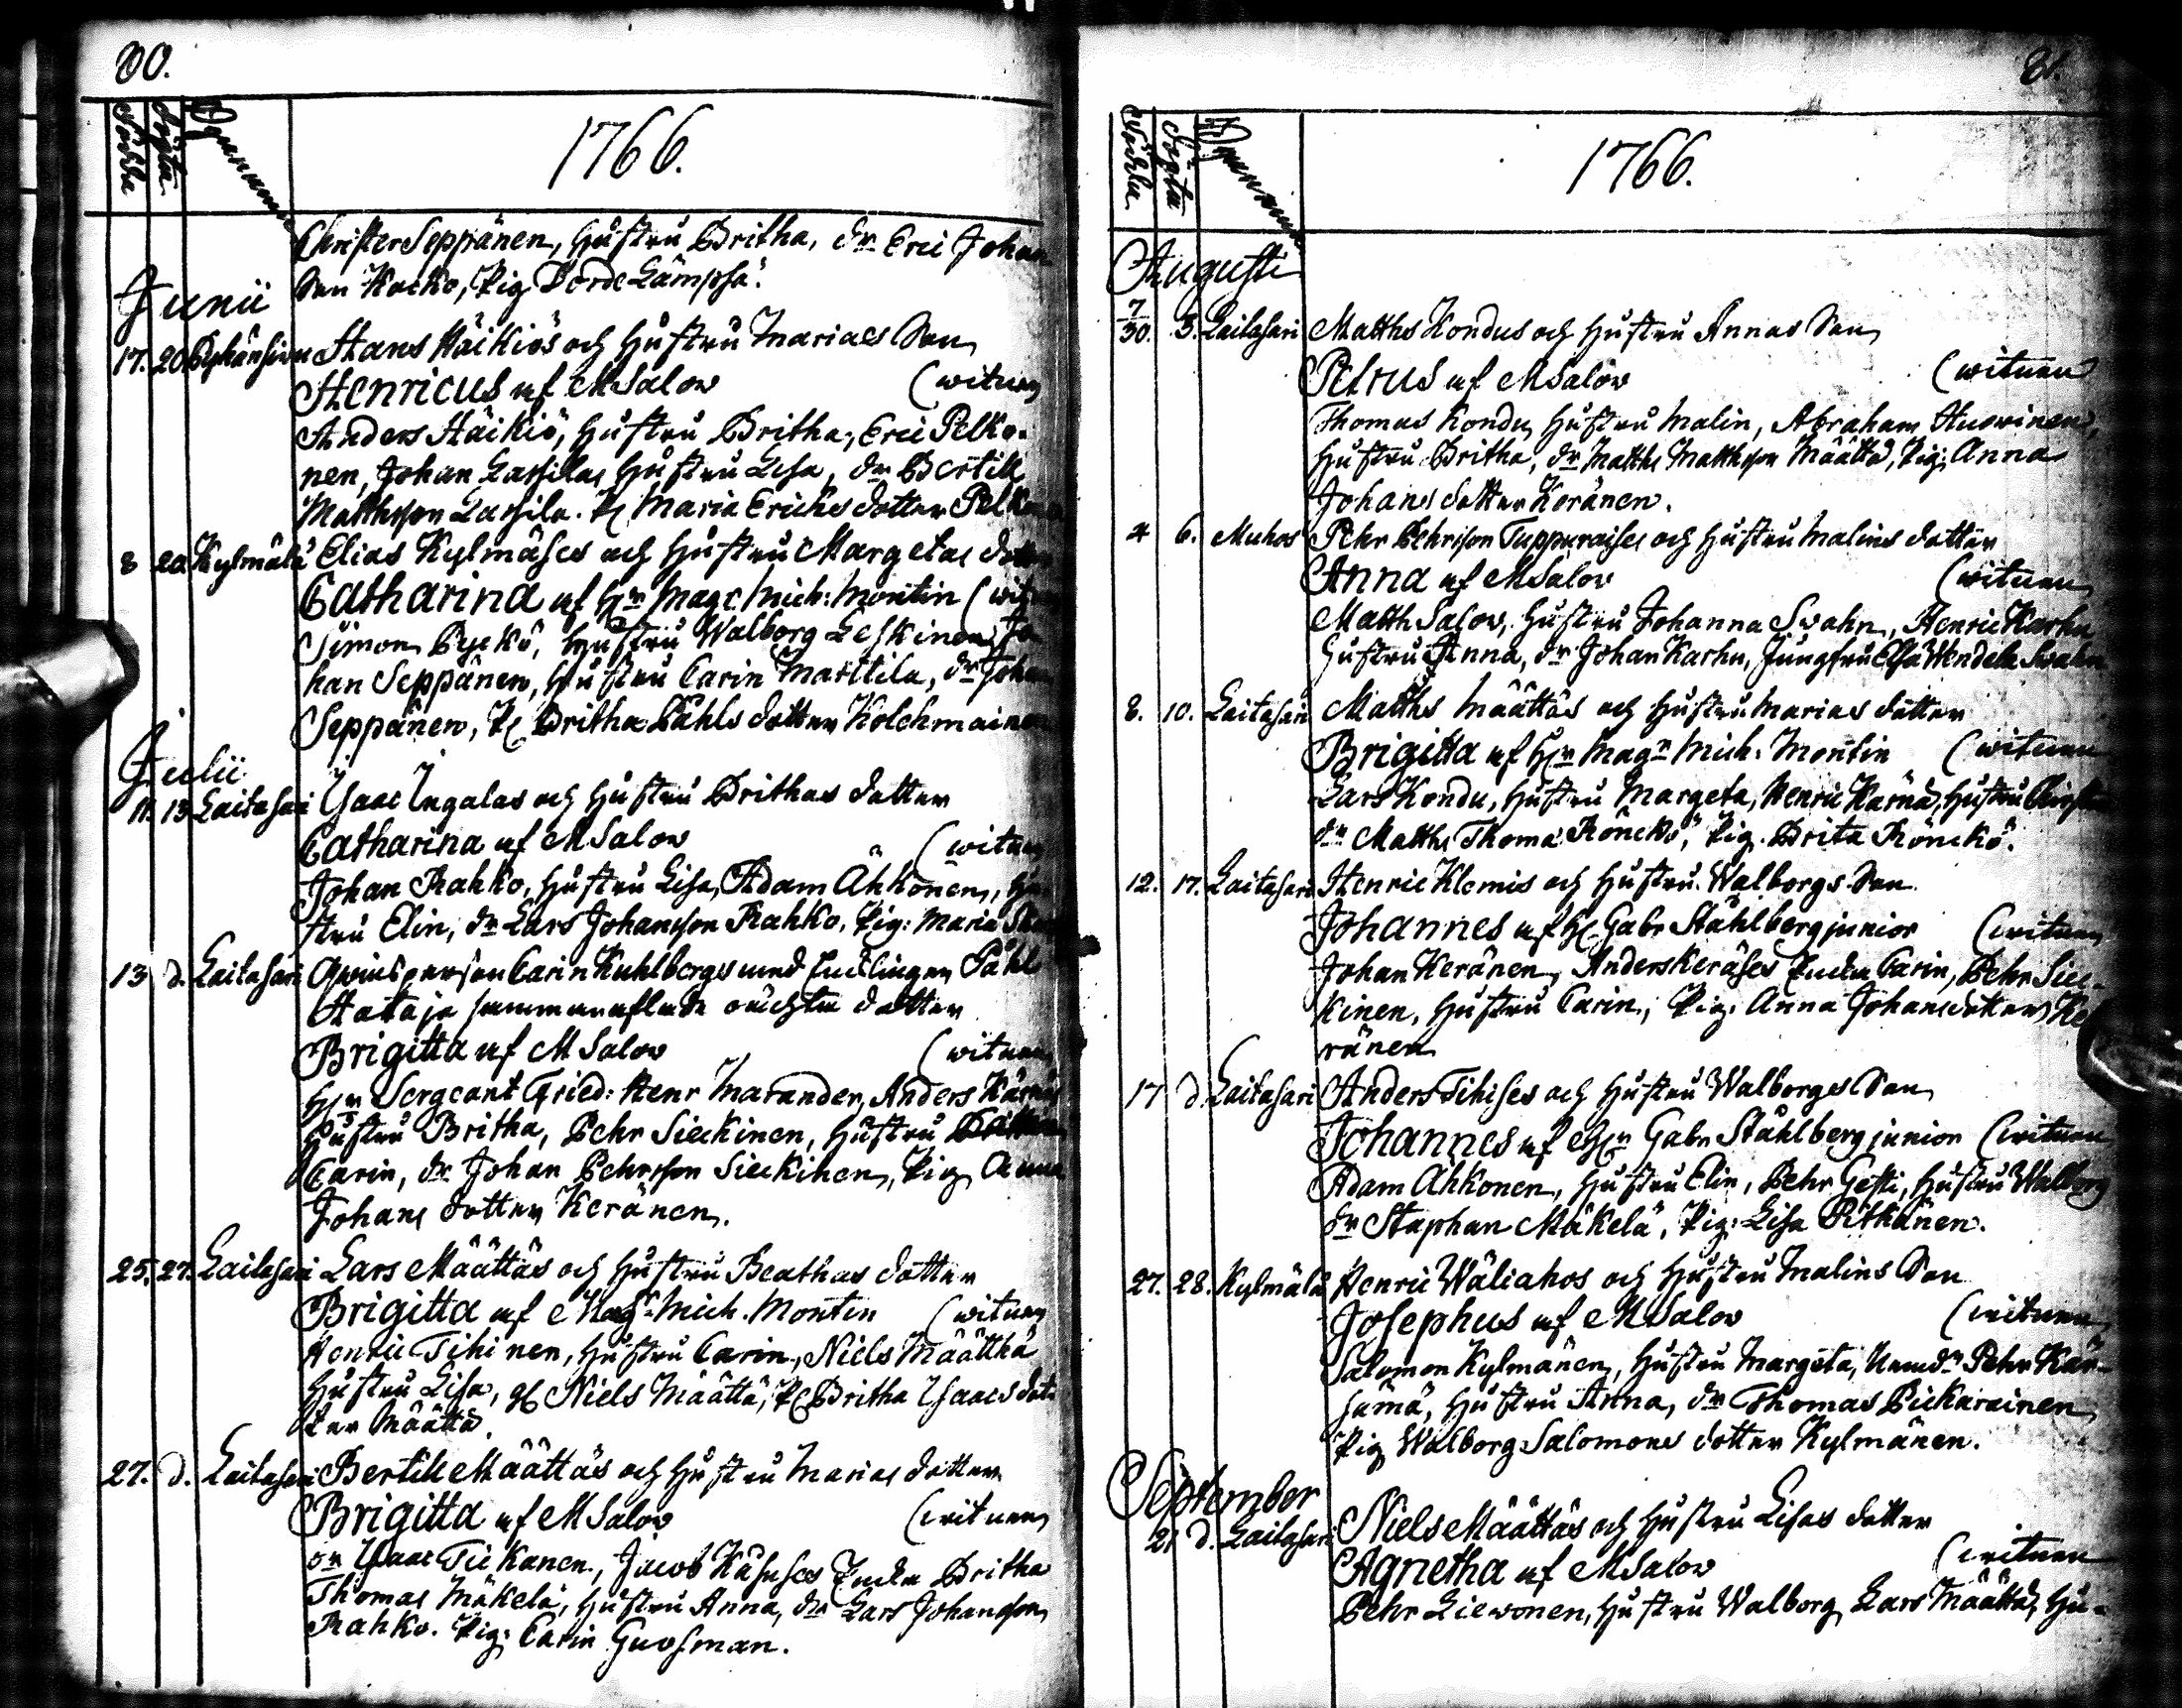 80.
Födda
Döpta
Bynamnen
1766.
Christer Seppänen, Hustru Britha, dr. Eric Johan
Son Kocko, Pig Lämpsä.
Junii
17. 20 Pyhänsivu Hans Häikiös och Hustru Marias Son
Henricus af M Salov (witnen
Anders Häikiö, Hustru Britha, Eric Pelko-
nen, Johan Lassilas Hustru Lisa, dr. Bertill
Matthsson Lassila. P Maria Erichs dotter
8 20 Kylmälä Elias Kylmäses och Hustru Margetas dotter
Catharina af Hr Mag. Mich: Montin (
Simon Pyckö, Hustru Walborg Leskinen, Jo
han Seppänen, Hustru Carin Marttila, dr Johan
Seppänen, P Britha Påhls dotter Kolehmainen
Julii
11. 13 Laitasari Isaac Ingalas och Hustru Brithas dotter
Catharina af M Salov (witnen
Johan Rahko, Hustru Lisa, Adam Ahkonen, Hu
stru Elin, dr Lars Johansson Rahko. Pig: Maria
13 d. Laitasari Qvinsperson Carin Kuhlbergs med Enclingen Påhl
Hataja sammanaflade oächta dotter
Brigitta af M Salov (witnen
Hr Sergeant Fried: Henr Marander, Anders
Hustru Britha, Pehr Sieckinen, Hustru
Carin, dr Johan Pehrsson Sieckinen, Pig Anna
Johans dotter Keränen.
25. 27. Laitasari Lars Määttäs och Hustru Beathas dotter
Brigitta af Mag: Mich. Montin (witnen
Henric Tihinen, Hustru Carin, Niels Määtthä
Hustru Lisa, Niels Määttä, P Britha Isaacs dot
ter Määttä.
27. d. Laitasari Bertill Määttäs och Hustru Marias dotter
Brigitta af M Salov (witnen
dr Isaac Tickanen, Jacob Encka Britha
Thomas Mäkelä, Hustru Anna, dr Lars Johansson
Rahko. Pig: Carin Guosman.
81.
Födda
Döpta
Bynamnen
1766.
Augusti
7/30. 3. Laitasari Matths Kondus och Hustru Annas Son
Petrus af M Salov (witnen
Thomas Kondu, Hustru Malin, Abraham Huovinen,
Hustru Britha, dr Matths Matthsson Määttä, Pig: Anna
Johans dotter Koränen.
4 6. Muhos Pehr Pehrsson Tuppuraises och Hustru Malins dotter
Anna af M Salov (witnen
Matth Salov, Hustru Johanna Swahn, Henric Karhu
Hustru Anna, dr Johan Karhu, Jungfru Elsa Wendela Swahn
8. 10. Laitasari Matths Määttäs och Hustru Marias dotter
Brigitta af Hr Magr Mich: Montin (witnen
Lars Kondu, Hustru Margeta, Henric Kärnä, Hustru
dr Matths Thomas Röncko, Pig. Brita Rönckö.
12. 17. Laitasari Henric Klemis och Hustru Walborgs Son
Johannes af H Gabr Ståhlberg junior (witnen
Johan Keränen, Anders Keräses Encka Carin, Pehr Siec-
kinen, Hustru Carin, Pig. Anna Johansdotter Ke
ränen
17 d. Laitasari Anders Tihises och Hustru Walborgs Son
Johannes af Hr Gabr Ståhlberg junior (witnen
Adam Ahkonen, Hustru Elin, Pehr Gesti, Hustru Walborg
dr Staphan Mäkelä, Pig: Lisa Pitkänen.
27. 28. Kylmälä Henric Wäliahos och Hustru Malins Son
Josephus af M Salov (witnen
Salomon Kylmänen, Hustru Margeta, Nemdm Pehr Kär-
sämä, Hustru Anna, dr Thomas Pickarainen
Pig Walborg Salomons dotter Kylmänen.
September
21 d. Laitasari Niels Määttäs och Hustru Lisas dotter
Agnetha af M Salov (witnen
Pehr Liewonen, Hustru Walborg, Lars Määttä, Hu-